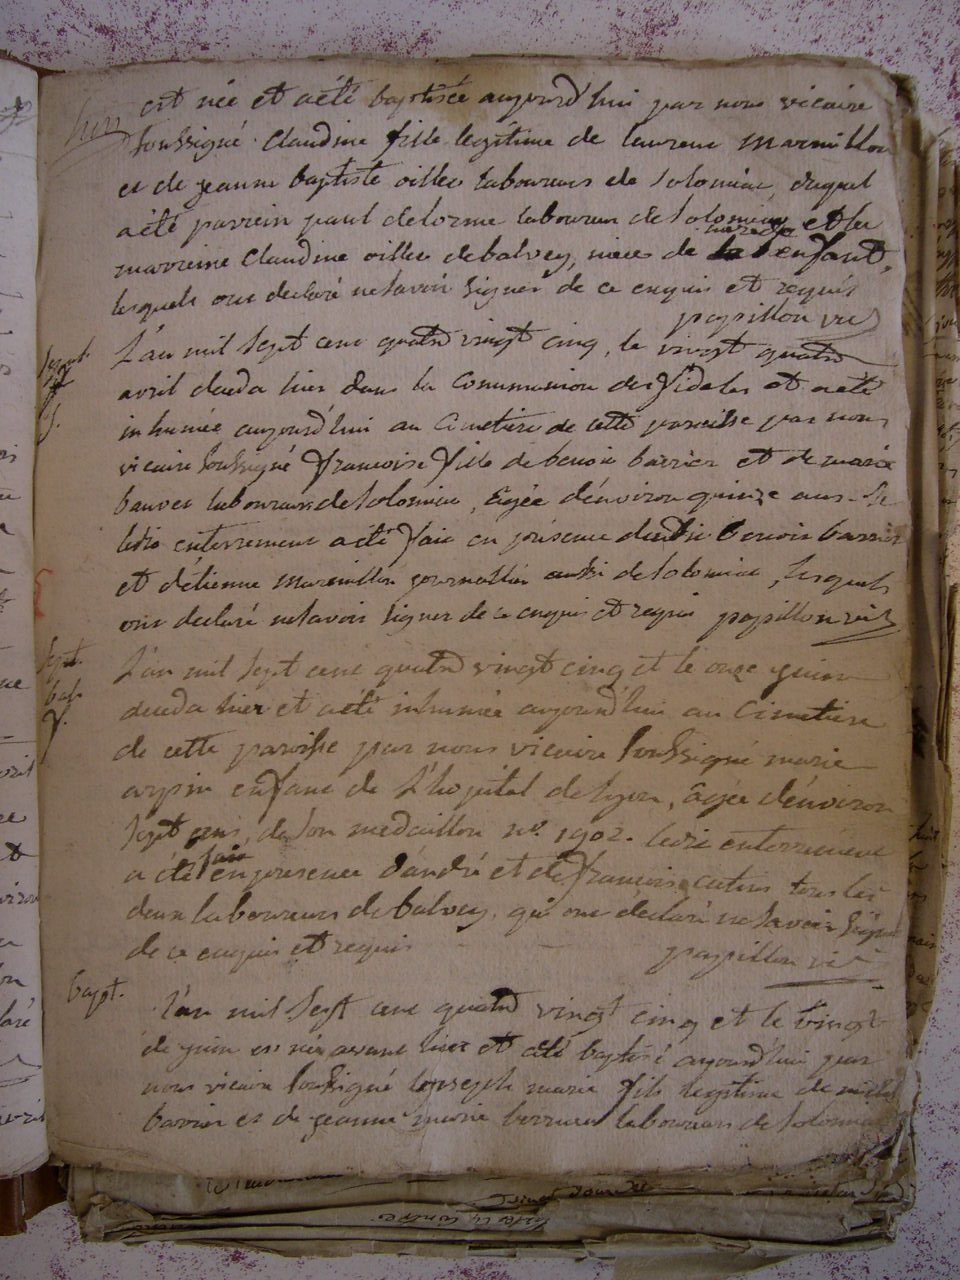 est née et a été baptisée aujourd'hui par nous vicaire
soussigné claudine fille legitime de laurent marmillon
et de jeanne baptiste laboureurs de solomiac, duquel
a été parrein paul delorme laboureur de solomiac et la
marreine claudine de balvey, de l'enfant,
lesquels ont declaré ne savoir signer de ce enquis et requis
papillon vic
L'an mil sept cent quatre vingt cinq, le vingt quatre
avril deceda hier dans la communion des fideles et a eté
inhumée aujourd'hui au cimetiere de cette paroisse par nous
vicaire soussigné francoise fille de benoit barrier et de marie
laboureurs de solomiac, agée d'environ quinze ans. le
ledit enterrement a été fait en présence dudit benoit barrier
et d'étienne marmillon journallier aussi de solomiac, lesquels
ont declaré ne savoir signer de ce enquis et requis papillon vic
sept.
bal
L'an mil sept cent quatre vingt cinq et le onze juin
deceda hier et a été inhumée aujourd'hui au cimetiere
de cette paroisse par nous vicaire soussigné marie
arpin enfant de l'hopital de lyon, agée d'environ
sept ans, de son medaillon n°. 1902. ledit enterrement
a été fait en presence d'andré et de francois tous les
deux laboureurs de balvey, qui ont declaré ne savoir signer
de ce enquis et requis papillon vic
bapt.
L'an mil sept cent quatre vingt cinq et le vingt
de juin est né avant hier et a été baptisé aujourd'hui par
nous vicaire soussigné joseph marie fils legitime de
barrier et de jeanne marie laboureurs de solomiac